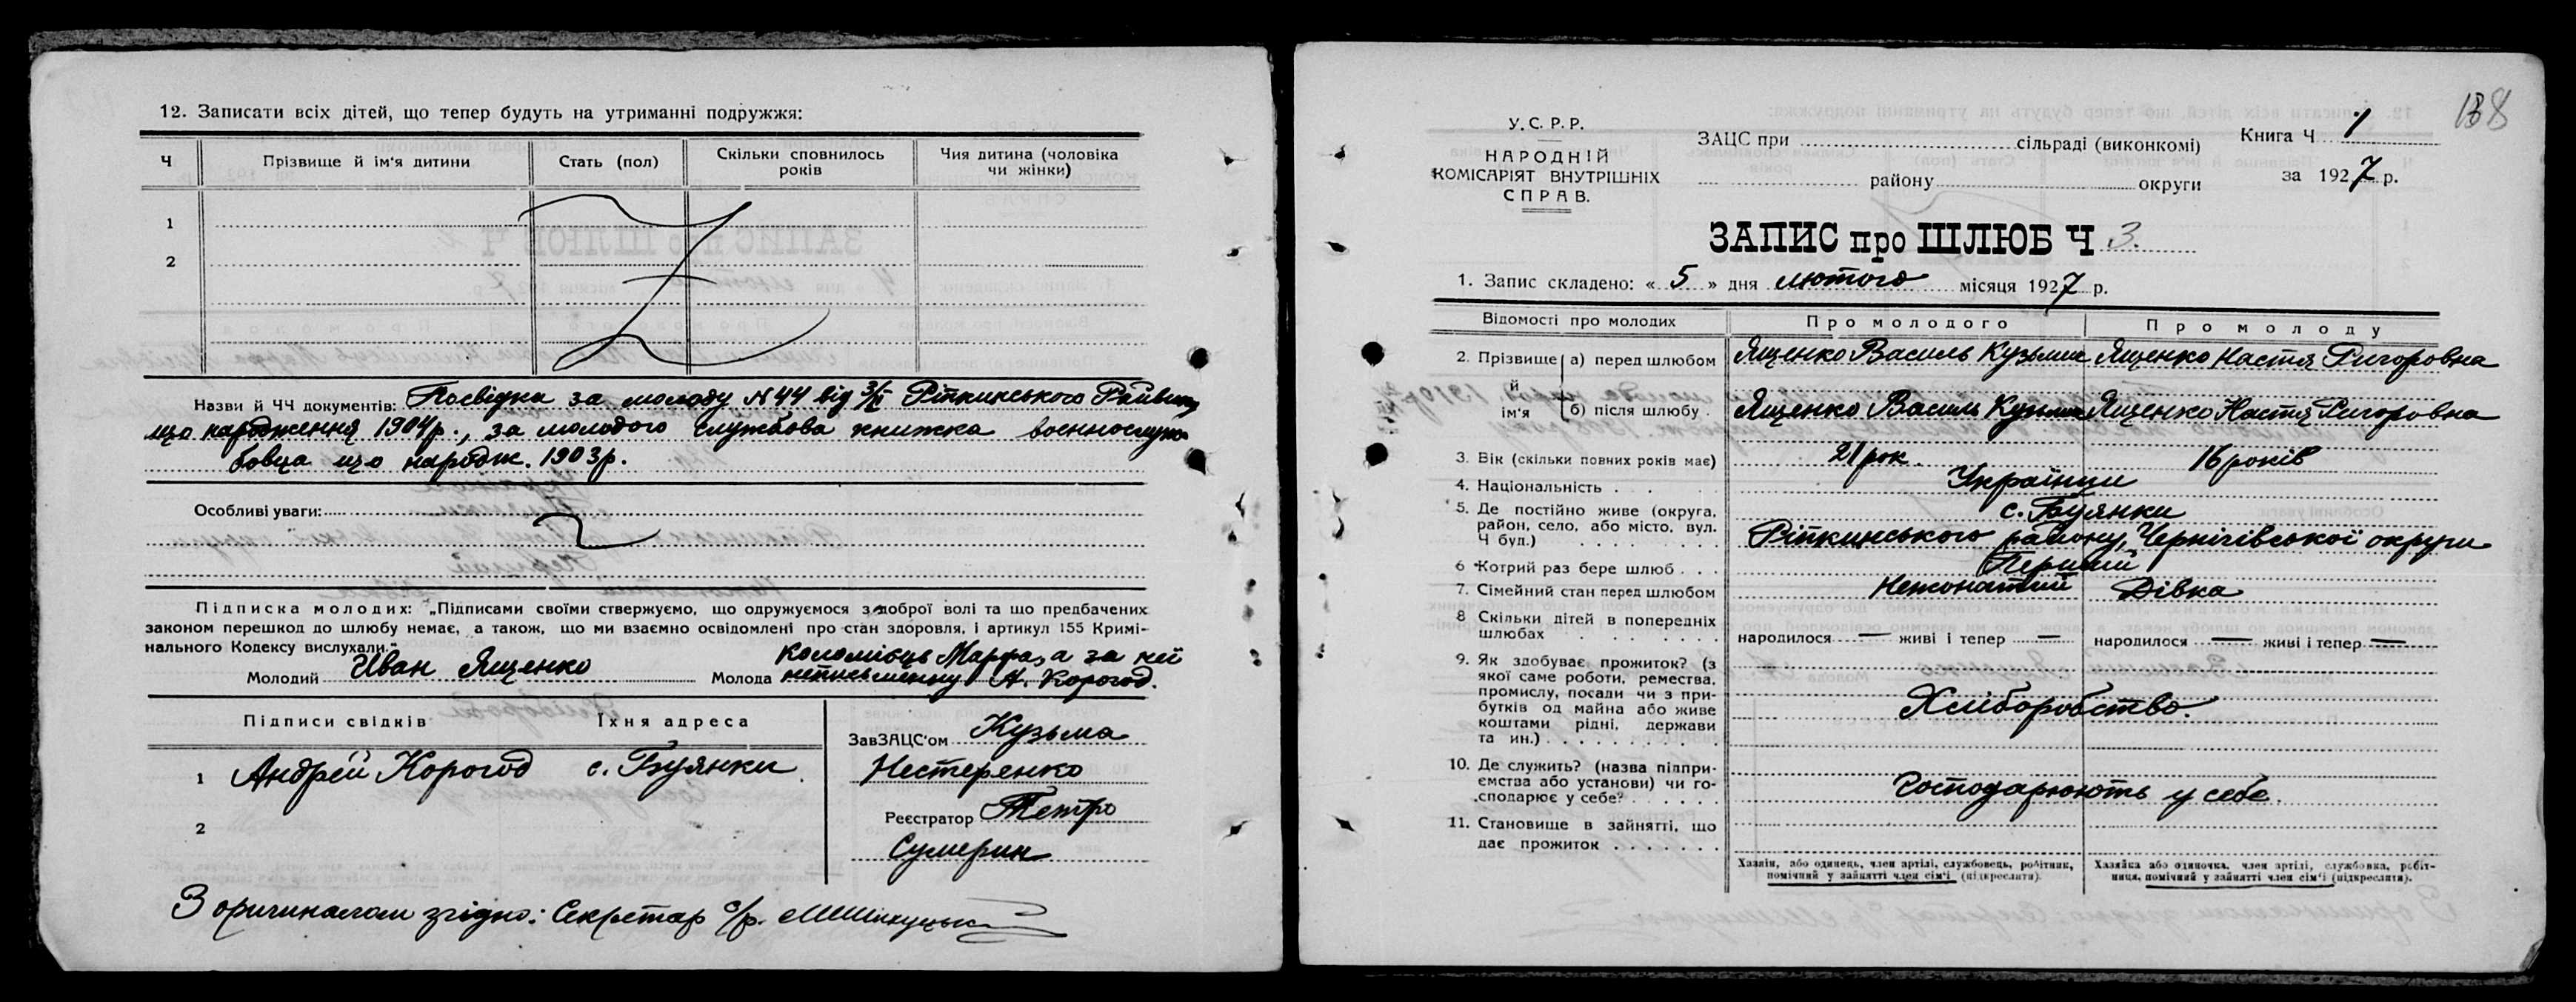 12. Записати всіх дітей, що тепер будуть на утриманні подружжя:
Ч Прізвище й ім'я дитини Стать (пол) Скільки сповнилось років Чия дитина (чоловіка чи жінки)
1
2
Назви й ЧЧ документів: Посвідка за молоду №44 від 3/II Ріпкинського Райвик,
що народження 1904р., за молодого Службова книжка военнослуж-
бовца що народж. 1903р.
Особливі уваги:
Підписка молодих: „Підписами своїми стверджуємо, що одружуємося з доброї волі та що предбачених
законом перешкод до шлюбу немає, а також, що ми взаємно освідомлені про стан здоровля, і артикул 155 Кримі-
нального Кодексу вислухали."
Молодий Иван Ященко Молода Коломієць Марфа, а за неї
неписьменну А. Корогод.
Підписи свідків Їхня адреса
1 Андрей Корогод с. Буянки
2
ЗавЗАЦС'ом Кузьма
Нестеренко
Реєстратор Петро
Сумерин
З оригиналом згідно: Секретар с/р.
138
У.С.Р.Р.
НАРОДНІЙ
КОМІСАРІЯТ ВНУТРІШНІХ
СПРАВ.
ЗАЦС при сільраді (виконкомі)
району округи
Книга Ч 1
за 1927 р.
ЗАПИС про ШЛЮБ Ч 3.
1. Запис складено: « 5 » дня лютого місяця 1927 р.
Відомості про молодих Про молодого Про молоду
2. Прізвище й ім'я а) перед шлюбом Ященко Василь Кузьмич Ященко Настя Григоровна
б) після шлюбу Ященко Василь Кузьмич Ященко Настя Григоровна
3. Вік (скільки повних років має) 21 рок. 16 років
4. Національність Українци
5. Де постійно живе (округа, с. Буянки
район, село, або місто, вул. Ріпкинського району, Чернігівської округи
Ч буд.)
6 Котрий раз бере шлюб Перший
7. Сімейний стан перед шлюбом Нежонатий Дівка
8 Скільки дітей в попередніх
шлюбах народилося — живі і тепер — народилося — живі і тепер —
9. Як здобуває прожиток? (з
якої саме роботи, ремества,
промислу, посади чи з при-
бутків од майна або живе Хліборобство.
коштами рідні, держави
та ин.)
10. Де служить? (назва підпри-
ємства або установи) чи го- Господарюють у себе.
сподарює у себе?
11. Становище в зайнятті, що
дає прожиток
Хазяїн, або одинець, член артілі, службовець, робітник,
помічний у зайнятті член сім'ї (підкреслити).
Хазяйка або одиночка, член артілі, службовка, робіт-
ниця, помічний у зайнятті член сім'ї (підкреслити).